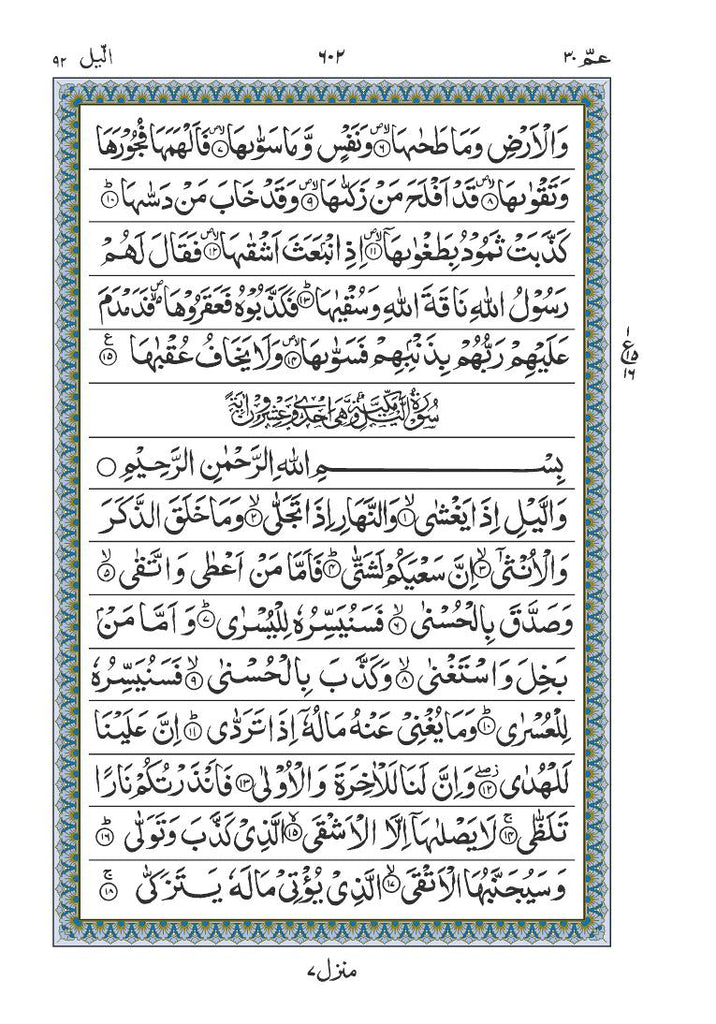 عمّ ٣٠ ٦٠٢ الّیل ٩٢
وَالۡاَرۡضِ وَمَا طَحٰىہَا ۪ۙ﴿۶﴾ وَنَفۡسٍ وَّمَا سَوّٰىہَا ۪ۙ﴿۷﴾ فَاَلۡہَمَہَا فُجُوۡرَہَا
وَتَقۡوٰىہَا ۪ۙ﴿۸﴾ قَدۡ اَفۡلَحَ مَنۡ زَکّٰىہَا ۪ۙ﴿۹﴾ وَقَدۡ خَابَ مَنۡ دَسّٰىہَا ﴿ؕ۱۰﴾
کَذَّبَتۡ ثَمُوۡدُ بِطَغۡوٰىہَاۤ ۪ۙ﴿۱۱﴾ اِذِ انۡۢبَعَثَ اَشۡقٰىہَا ۪ۙ﴿۱۲﴾ فَقَالَ لَہُمۡ
رَسُوۡلُ اللّٰہِ نَاقَۃَ اللّٰہِ وَسُقۡیٰہَا ﴿ؕ۱۳﴾ فَکَذَّبُوۡہُ فَعَقَرُوۡہَا ۪ۙ فَدَمۡدَمَ
عَلَیۡہِمۡ رَبُّہُمۡ بِذَنۡۢبِہِمۡ فَسَوّٰىہَا ۪ۙ﴿۱۴﴾ وَلَا یَخَافُ عُقۡبٰہَا ﴿٪۱۵﴾
١
ع
١٥
١٦
سُوۡرَۃُ الَّیۡلِ مَکِّیَّۃٌ وَّہِیَ اِحۡدٰی وَّعِشۡرُوۡنَ اٰیَۃً
بِسۡمِ اللّٰہِ الرَّحۡمٰنِ الرَّحِیۡمِ ○
وَالَّیۡلِ اِذَا یَغۡشٰی ۙ﴿۱﴾ وَالنَّہَارِ اِذَا تَجَلّٰی ۙ﴿۲﴾ وَمَا خَلَقَ الذَّکَرَ
وَالۡاُنۡثٰۤی ۙ﴿۳﴾ اِنَّ سَعۡیَکُمۡ لَشَتّٰی ؕ﴿۴﴾ فَاَمَّا مَنۡ اَعۡطٰی وَاتَّقٰی ۙ﴿۵﴾
وَصَدَّقَ بِالۡحُسۡنٰی ۙ﴿۶﴾ فَسَنُیَسِّرُہٗ لِلۡیُسۡرٰی ؕ﴿۷﴾ وَاَمَّا مَنۡۢ
بَخِلَ وَاسۡتَغۡنٰی ۙ﴿۸﴾ وَکَذَّبَ بِالۡحُسۡنٰی ۙ﴿۹﴾ فَسَنُیَسِّرُہٗ
لِلۡعُسۡرٰی ؕ﴿۱۰﴾ وَمَا یُغۡنِیۡ عَنۡہُ مَالُہٗۤ اِذَا تَرَدّٰی ؕ﴿۱۱﴾ اِنَّ عَلَیۡنَا
لَلۡہُدٰی ۫ۖ﴿۱۲﴾ وَاِنَّ لَنَا لَلۡاٰخِرَۃَ وَالۡاُوۡلٰی ﴿۱۳﴾ فَاَنۡذَرۡتُکُمۡ نَارًا
تَلَظّٰی ۚ﴿۱۴﴾ لَا یَصۡلٰىہَاۤ اِلَّا الۡاَشۡقَی ۙ﴿۱۵﴾ الَّذِیۡ کَذَّبَ وَتَوَلّٰی ؕ﴿۱۶﴾
وَسَیُجَنَّبُہَا الۡاَتۡقَی ۙ﴿۱۷﴾ الَّذِیۡ یُؤۡتِیۡ مَالَہٗ یَتَزَکّٰی ۚ﴿۱۸﴾
منزل ٧